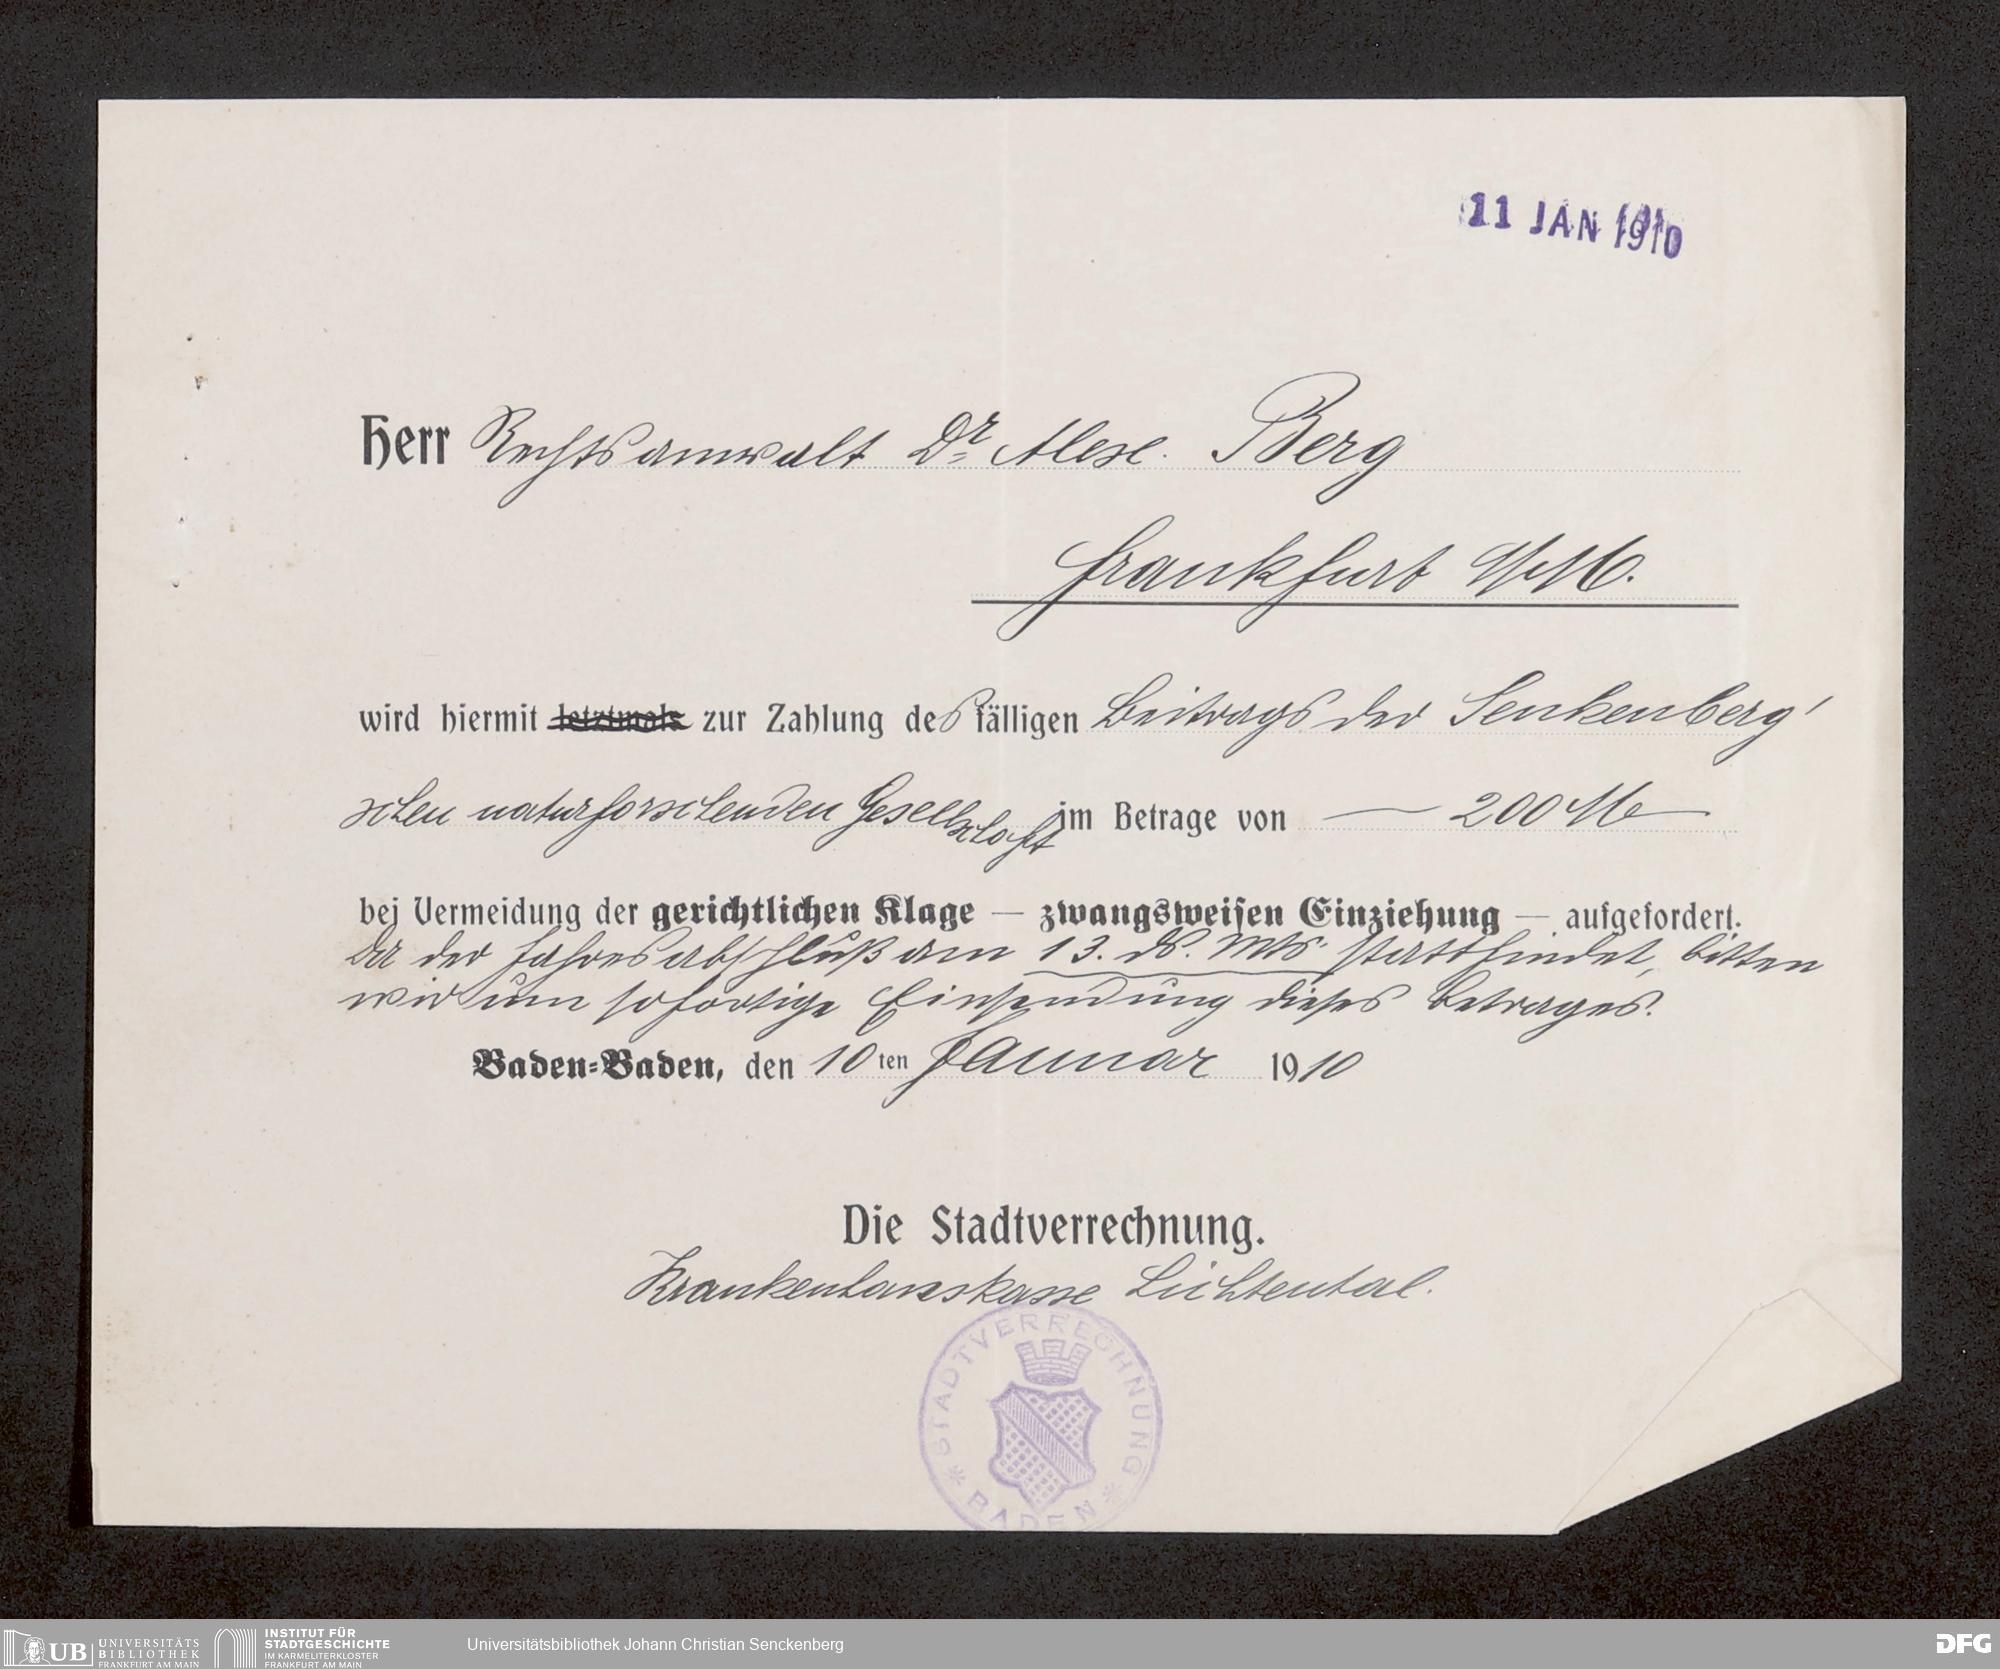 11 JAN 1910
Herr Rechtsanwalt Dr. Alex. Berg
Frankfurt a/M.
wird hiermit letztmals zur Zahlung des fälligen Beitrags der Senkenberg'
schen naturforschenden Gesellschaft im Betrage von — 200 M —
bei Vermeidung der gerichtlichen Klage — zwangsweisen Einziehung — aufgefordert.
Da der Jahresabschluß am 13. ds. Mts. stattfindet, bitten
wir um sofortige Einsendung dieses Betrages.
Baden-Baden, den 10ten Januar 1910
Die Stadtverrechnung.
Krankenhauskasse Lichtental.
STADTVERRECHNUNG
* BADEN *
UB UNIVERSITÄTS BIBLIOTHEK FRANKFURT AM MAIN
INSTITUT FÜR STADTGESCHICHTE IM KARMELITERKLOSTER FRANKFURT AM MAIN
Universitätsbibliothek Johann Christian Senckenberg
DFG